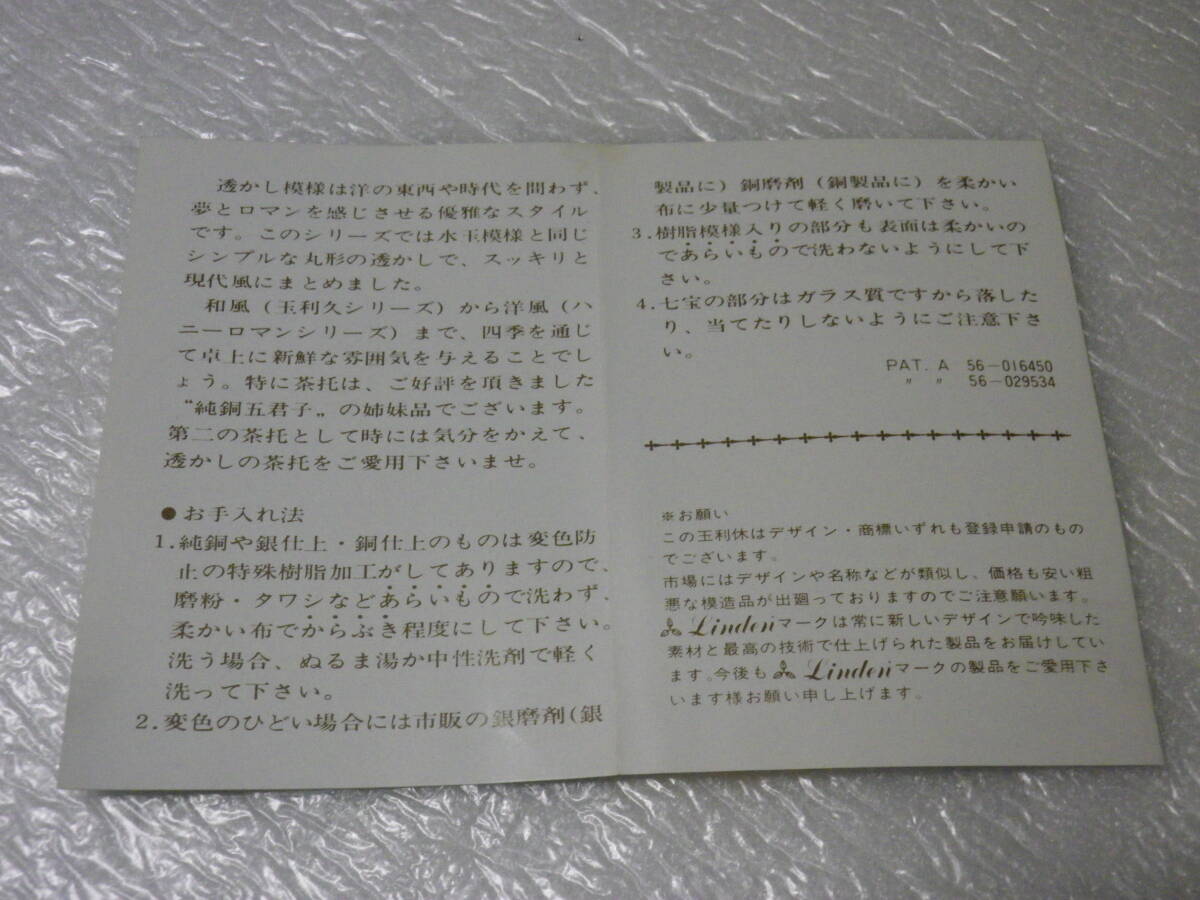 透かし模様は洋の東西や時代を問わず、
夢とロマンを感じさせる優雅なスタイル
です。このシリーズでは水玉模様と同じ
シンプルな丸形の透かしで、スッキリと
現代風にまとめました。
和風（玉利久シリーズ）から洋風（ハ
ニーロマンシリーズ）まで、四季を通じ
て卓上に新鮮な雰囲気を与えることでし
ょう。特に茶托は、ご好評を頂きました
〝純銅五君子〟の姉妹品でございます。
第二の茶托として時には気分をかえて、
透かしの茶托をご愛用下さいませ。
●お手入れ法
1.純銅や銀仕上・銅仕上のものは変色防
止の特殊樹脂加工がしてありますので、
磨粉・タワシなどあらいもので洗わず、
柔かい布でからぶき程度にして下さい。
洗う場合、ぬるま湯か中性洗剤で軽く
洗って下さい。
2.変色のひどい場合には市販の銀磨剤(銀
製品に）銅磨剤（銅製品に）を柔かい
布に少量つけて軽く磨いて下さい。
3.樹脂模様入りの部分も表面は柔かいの
であらいもので洗わないようにして下
さい。
4.七宝の部分はガラス質ですから落した
り、当てたりしないようにご注意下さ
い。
PAT. A 56-016450
〃 〃 56-029534
※お願い
この玉利休はデザイン・商標いずれも登録申請のもの
でございます。
市場にはデザインや名称などが類似し、価格も安い粗
悪な模造品が出廻っておりますのでご注意願います。
Lindenマークは常に新しいデザインで吟味した
素材と最高の技術で仕上げられた製品をお届けしてい
ます。今後も Lindenマークの製品をご愛用下さ
います様お願い申し上げます。